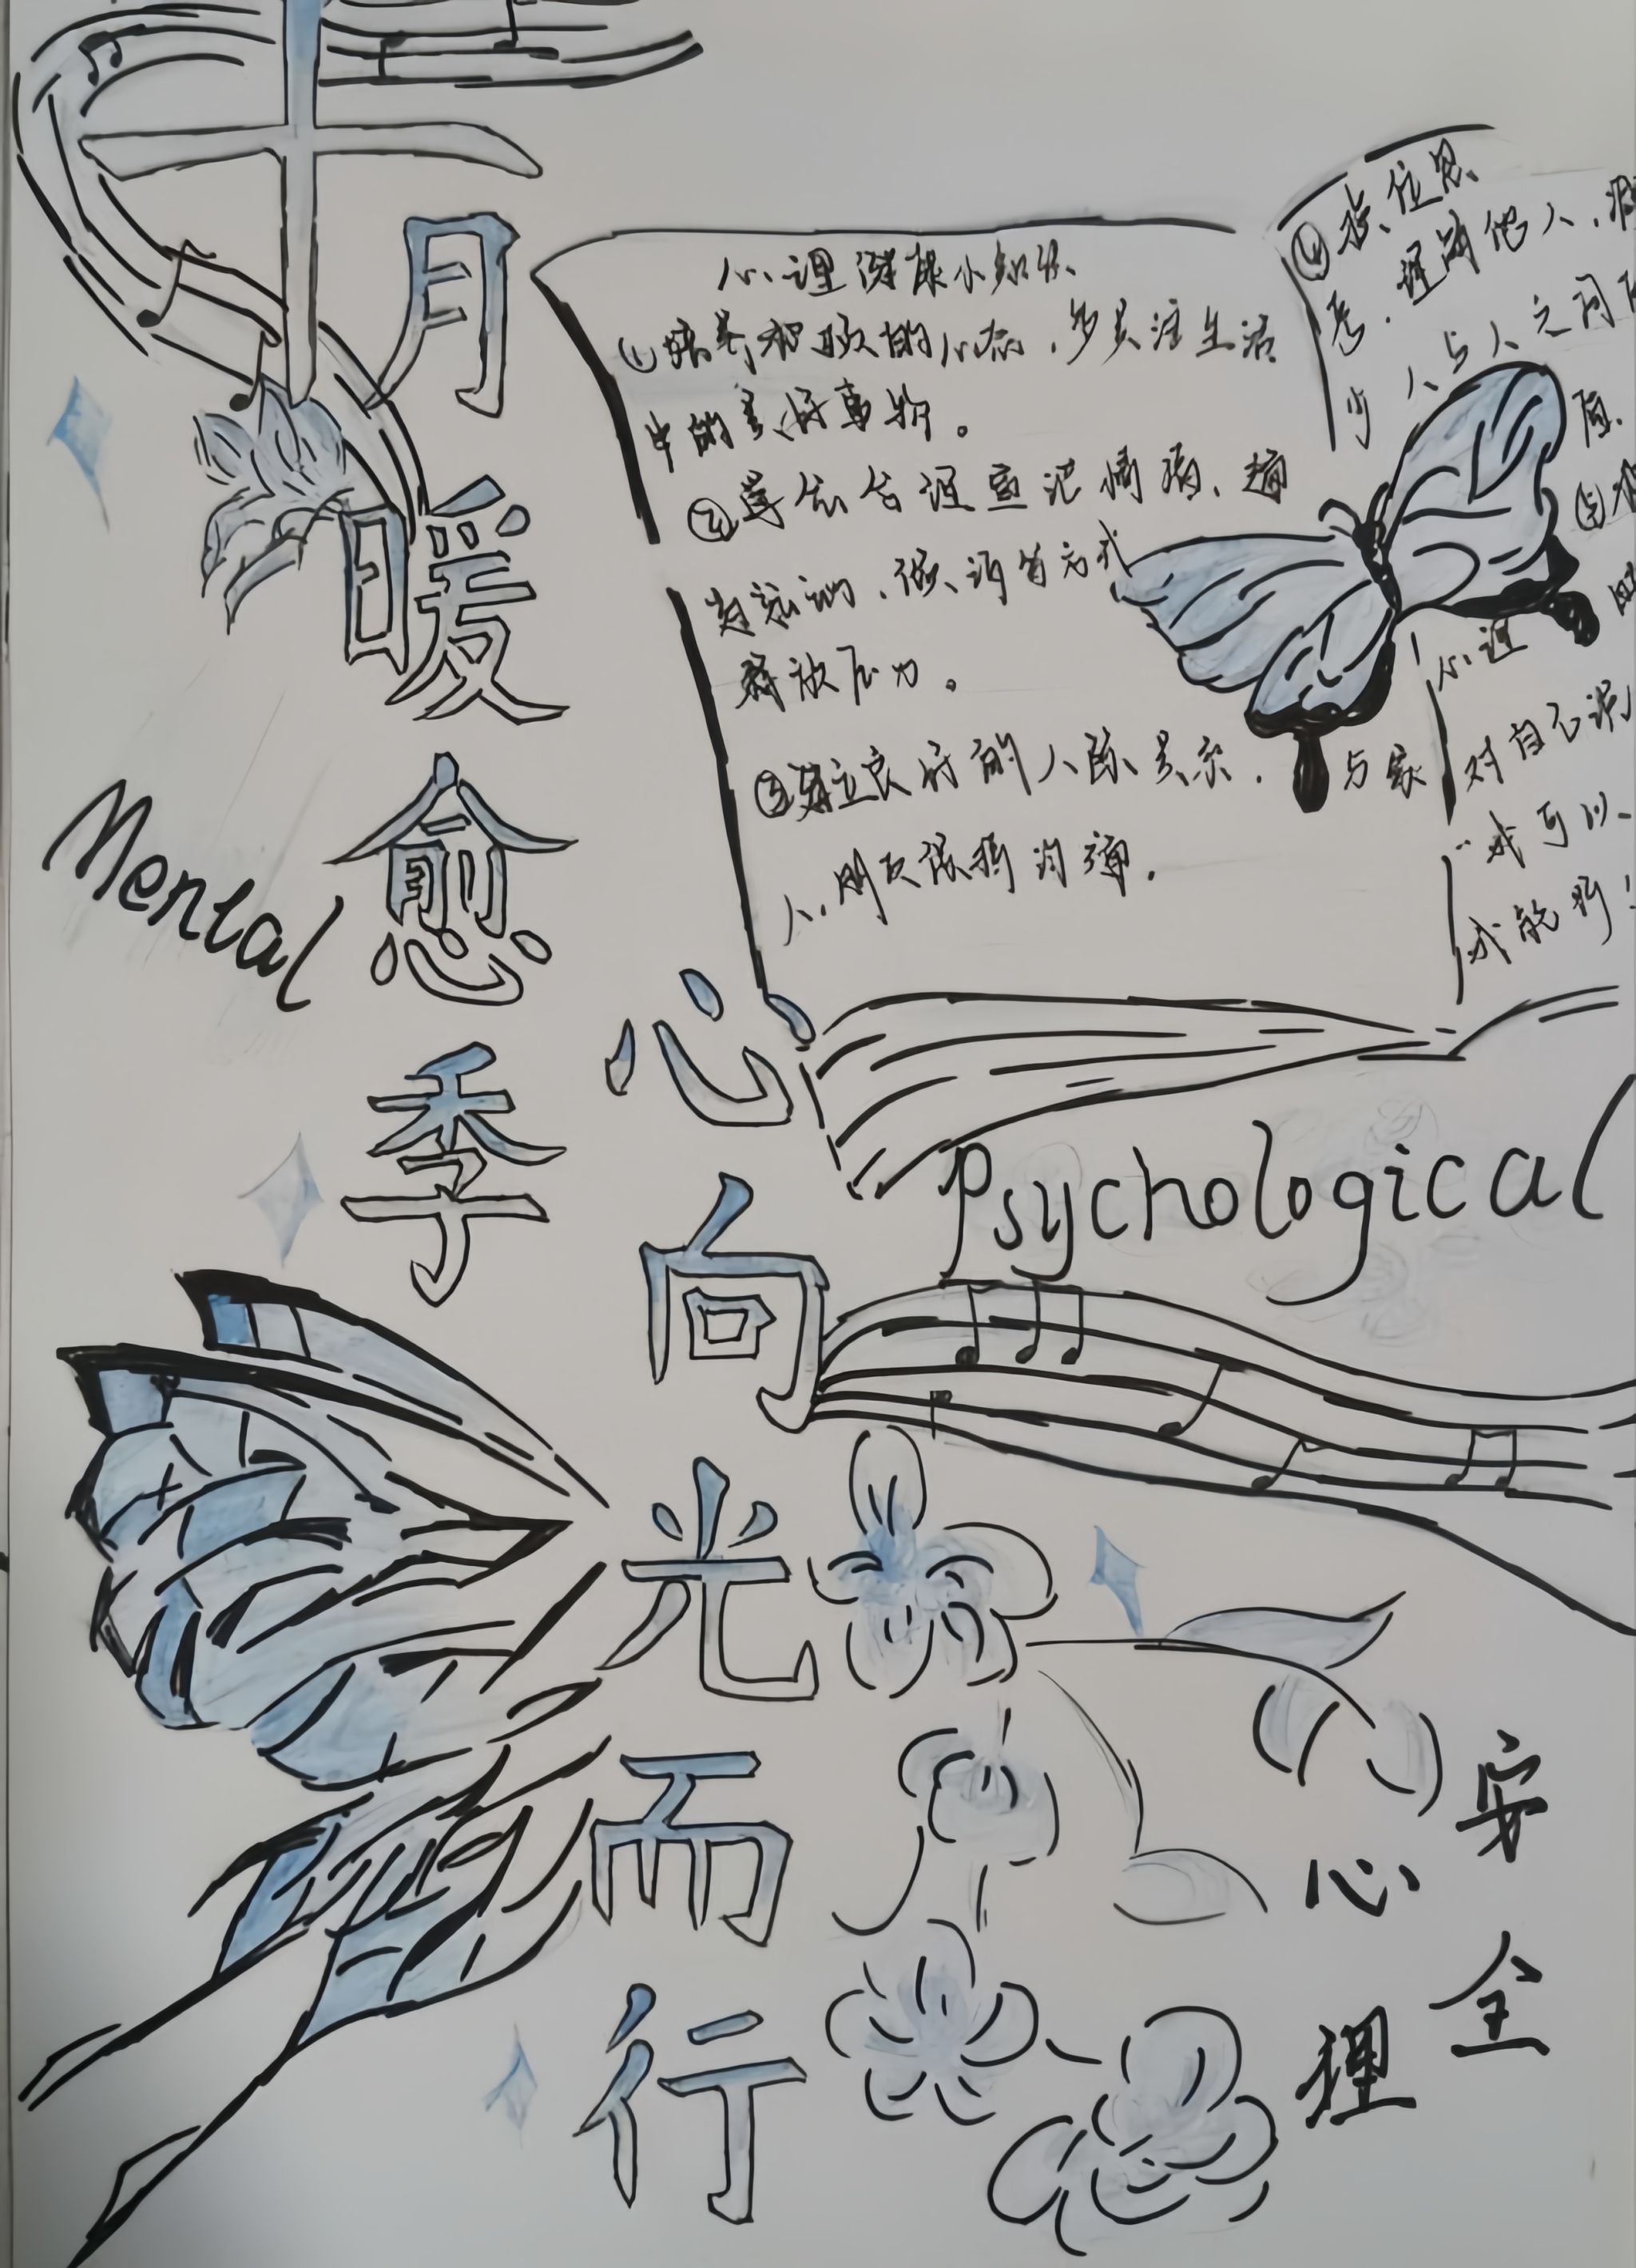 十月暖愈季
心向光而行
Mental
心理健康小知识
①培养积极的心态，多关注生活
中的美好事物。
②学会合理宣泄情绪、通
过运动、倾诉等方式
释放压力。
③建立良好的人际关系，与家
人、朋友保持沟通。
④换位思
考，理解他人，减
少人与人之间
心理
对自己说
"我可以
我能行！
Psychological
心理
安全